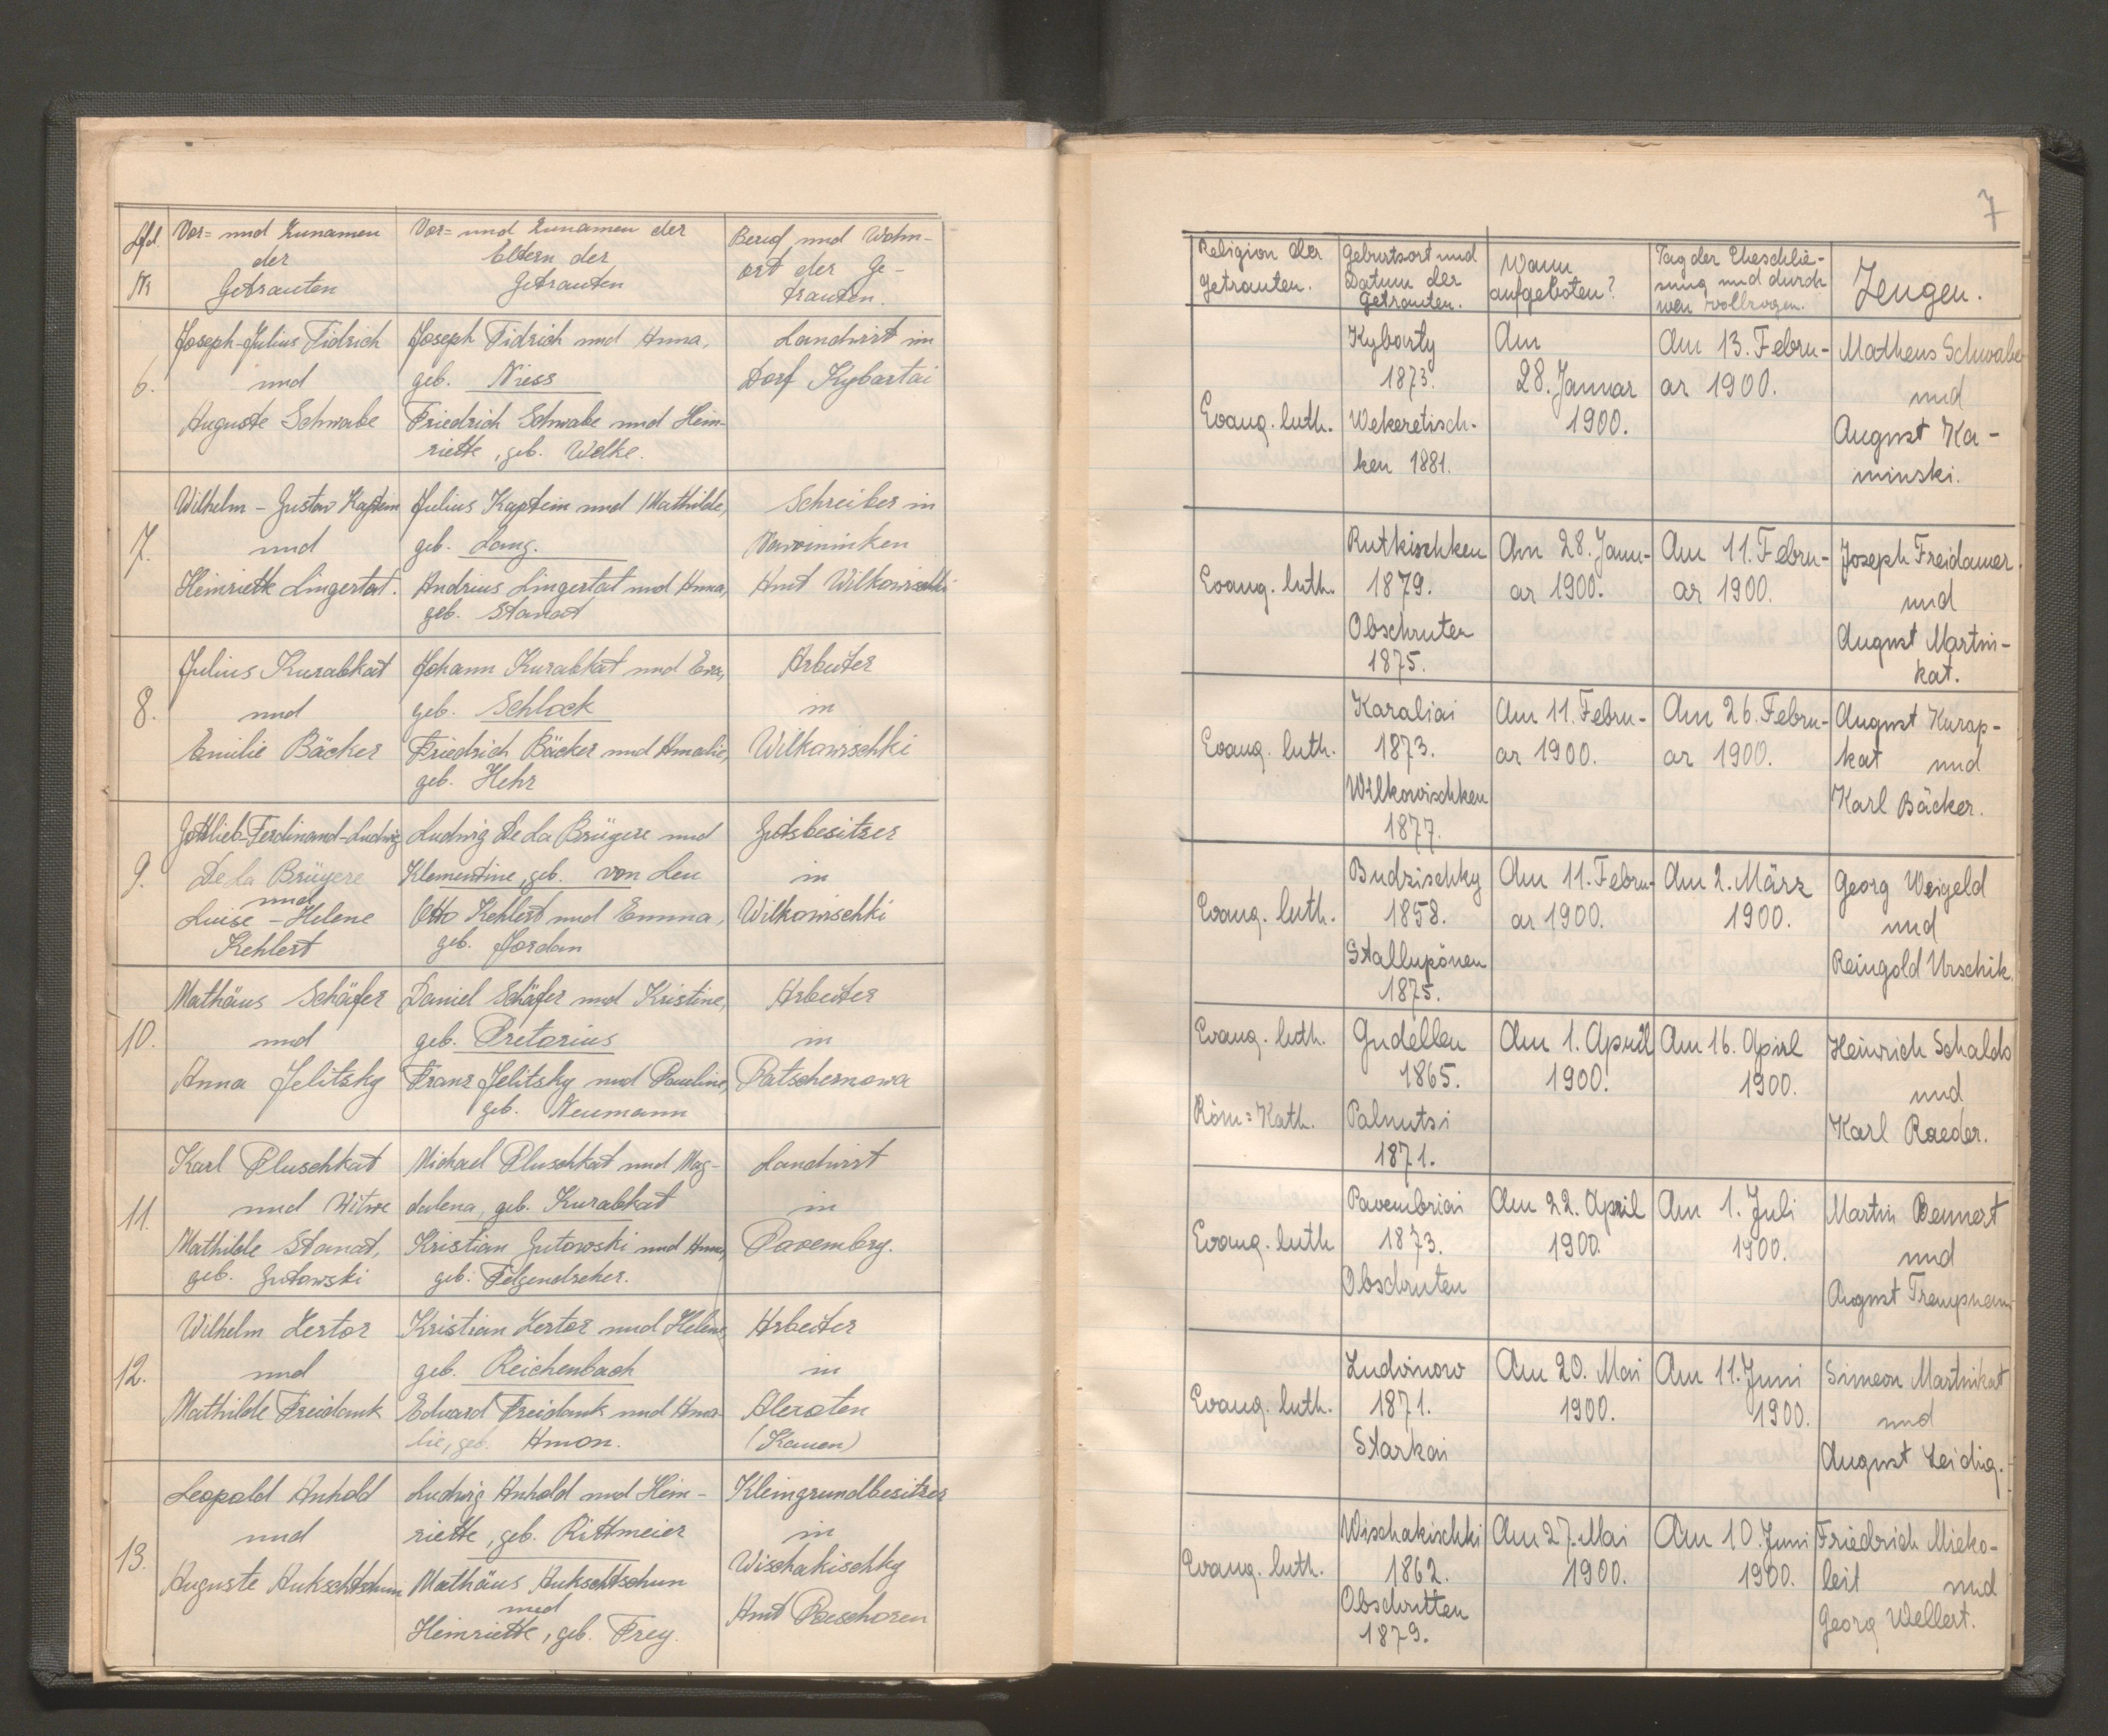 7
Lfd. Nr
Vor= und Zunamen
der
Getrauten
Vor= und Zunamen der
Eltern der
Getrauten
Beruf und Wohn-
ort der Ge-
trauten.
Religion der
Getrauten.
Geburtsort und
Datum der
Getrauten.
Wann
aufgeboten?
Tag der Eheschlie-
sung und durch
wen vollzogen.
Zeugen.
6.
Joseph-Julius Tidrich
und
Auguste Schwabe
Joseph Tidrich und Anna,
geb. Niess
Friedrich Schwabe und Hein-
riette, geb. Welke.
Landwirt im
Dorf Kybartai
Evang. luth.
Kybarty
1873.
Wekeretisch-
ken 1881.
Am
28. Januar
1900.
Am 13. Febru-
ar 1900.
Matheus Schwabe
und
August Ka-
minski.
7.
Wilhelm - Gustav Kaptein
und
Heinriette Lingertat.
Julius Kaptein und Mathilde,
geb. Lang.
Andrius Lingertat und Anna,
geb. Stanat
Schreiber in
Amt Wilkowischki
Evang. luth.
Rutkischken
1879.
Obschruten
1875.
Am 28. Janu-
ar 1900.
Am 11. Febru-
ar 1900.
Joseph Freidamer.
und
August Martni-
kat.
8.
Julius Kurabkat
und
Emilie Bäcker
Johann Kurabkat und Eva,
geb. Schlock
Friedrich Bäcker und Amalie,
geb. Hehr
Arbeiter
in
Wilkowischki
Evang. luth.
Karaliai
1873.
Wilkowischken
1877.
Am 11. Febru-
ar 1900.
Am 26. Febru-
ar 1900.
August Kurap-
kat und
Karl Bäcker.
9.
Gottlieb-Ferdinand-Ludwig
De la Brüyere
und
Luise - Helene
Kehlert
Ludwig De La Brügere und
Klementine, geb. von Leu
Otto Kehlert und Emma,
geb. Jordan
Gutsbesitzer
in
Wilkowischki
Evang. luth.
Budzischky
1858.
Stallupönen
1875.
Am 11. Febru-
ar 1900.
Am 2. März
1900.
Georg Weigeld
und
Reingold Urschik.
10.
Mathäus Schäfer
und
Anna Jelitzky
Daniel Schäfer und Kristine,
geb. Pretorius
Franz Jelitsky und Pauline,
geb. Neumann
Arbeiter
in
Patschernowa
Evang. luth.
Röm=Kath.
Gudellen
1865.
Palnutsi
1871.
Am 1. April
1900.
Am 16. Apirl
1900.
Heinrich Schaldo
und
Karl Raeder.
11.
Karl Pluschkat
und Witwe
Mathilde Stanat,
geb. Gutowski
Michael Pluschkat und Mag-
dalena, geb. Kurabkat
Kristian Gutowski und Anna,
geb. Felgendreher.
Landwirt
in
Pavembry.
Evang. luth
Pavembriai
1873.
Obschruten
Am 22. April
1900.
Am 1. Juli
1900.
Martin Bennert
und
August Trempnau
12.
Wilhelm Zertor
und
Mathilde Freidank
Kristian Zertor und Helene,
geb. Reichenbach
Eduard Freidank und Ama-
lie, geb. Amon.
Arbeiter
in
Alexoten
(Kauen)
Evang. luth.
Ludvinow
1871.
Starkai
Am 20. Mai
1900.
Am 11. Juni
1900.
Simeon Martnikat
und
August Zeidig.
13.
Leopold Anhold
und
Auguste Aukschtschun
Ludwig Anhold und Hein-
riette, geb. Rittmeier
Mathäus Aukschtschun
und
Heinriette, geb. Frey.
Kleingrundbesitzer
in
Wischakischky
Amt Poeschoren
Evang. luth.
Wischakischki
1862.
Obschritten
1879.
Am 27. Mai
1900.
Am 10. Juni
1900.
Friedrich Mieko-
leit und
Georg Wellert.